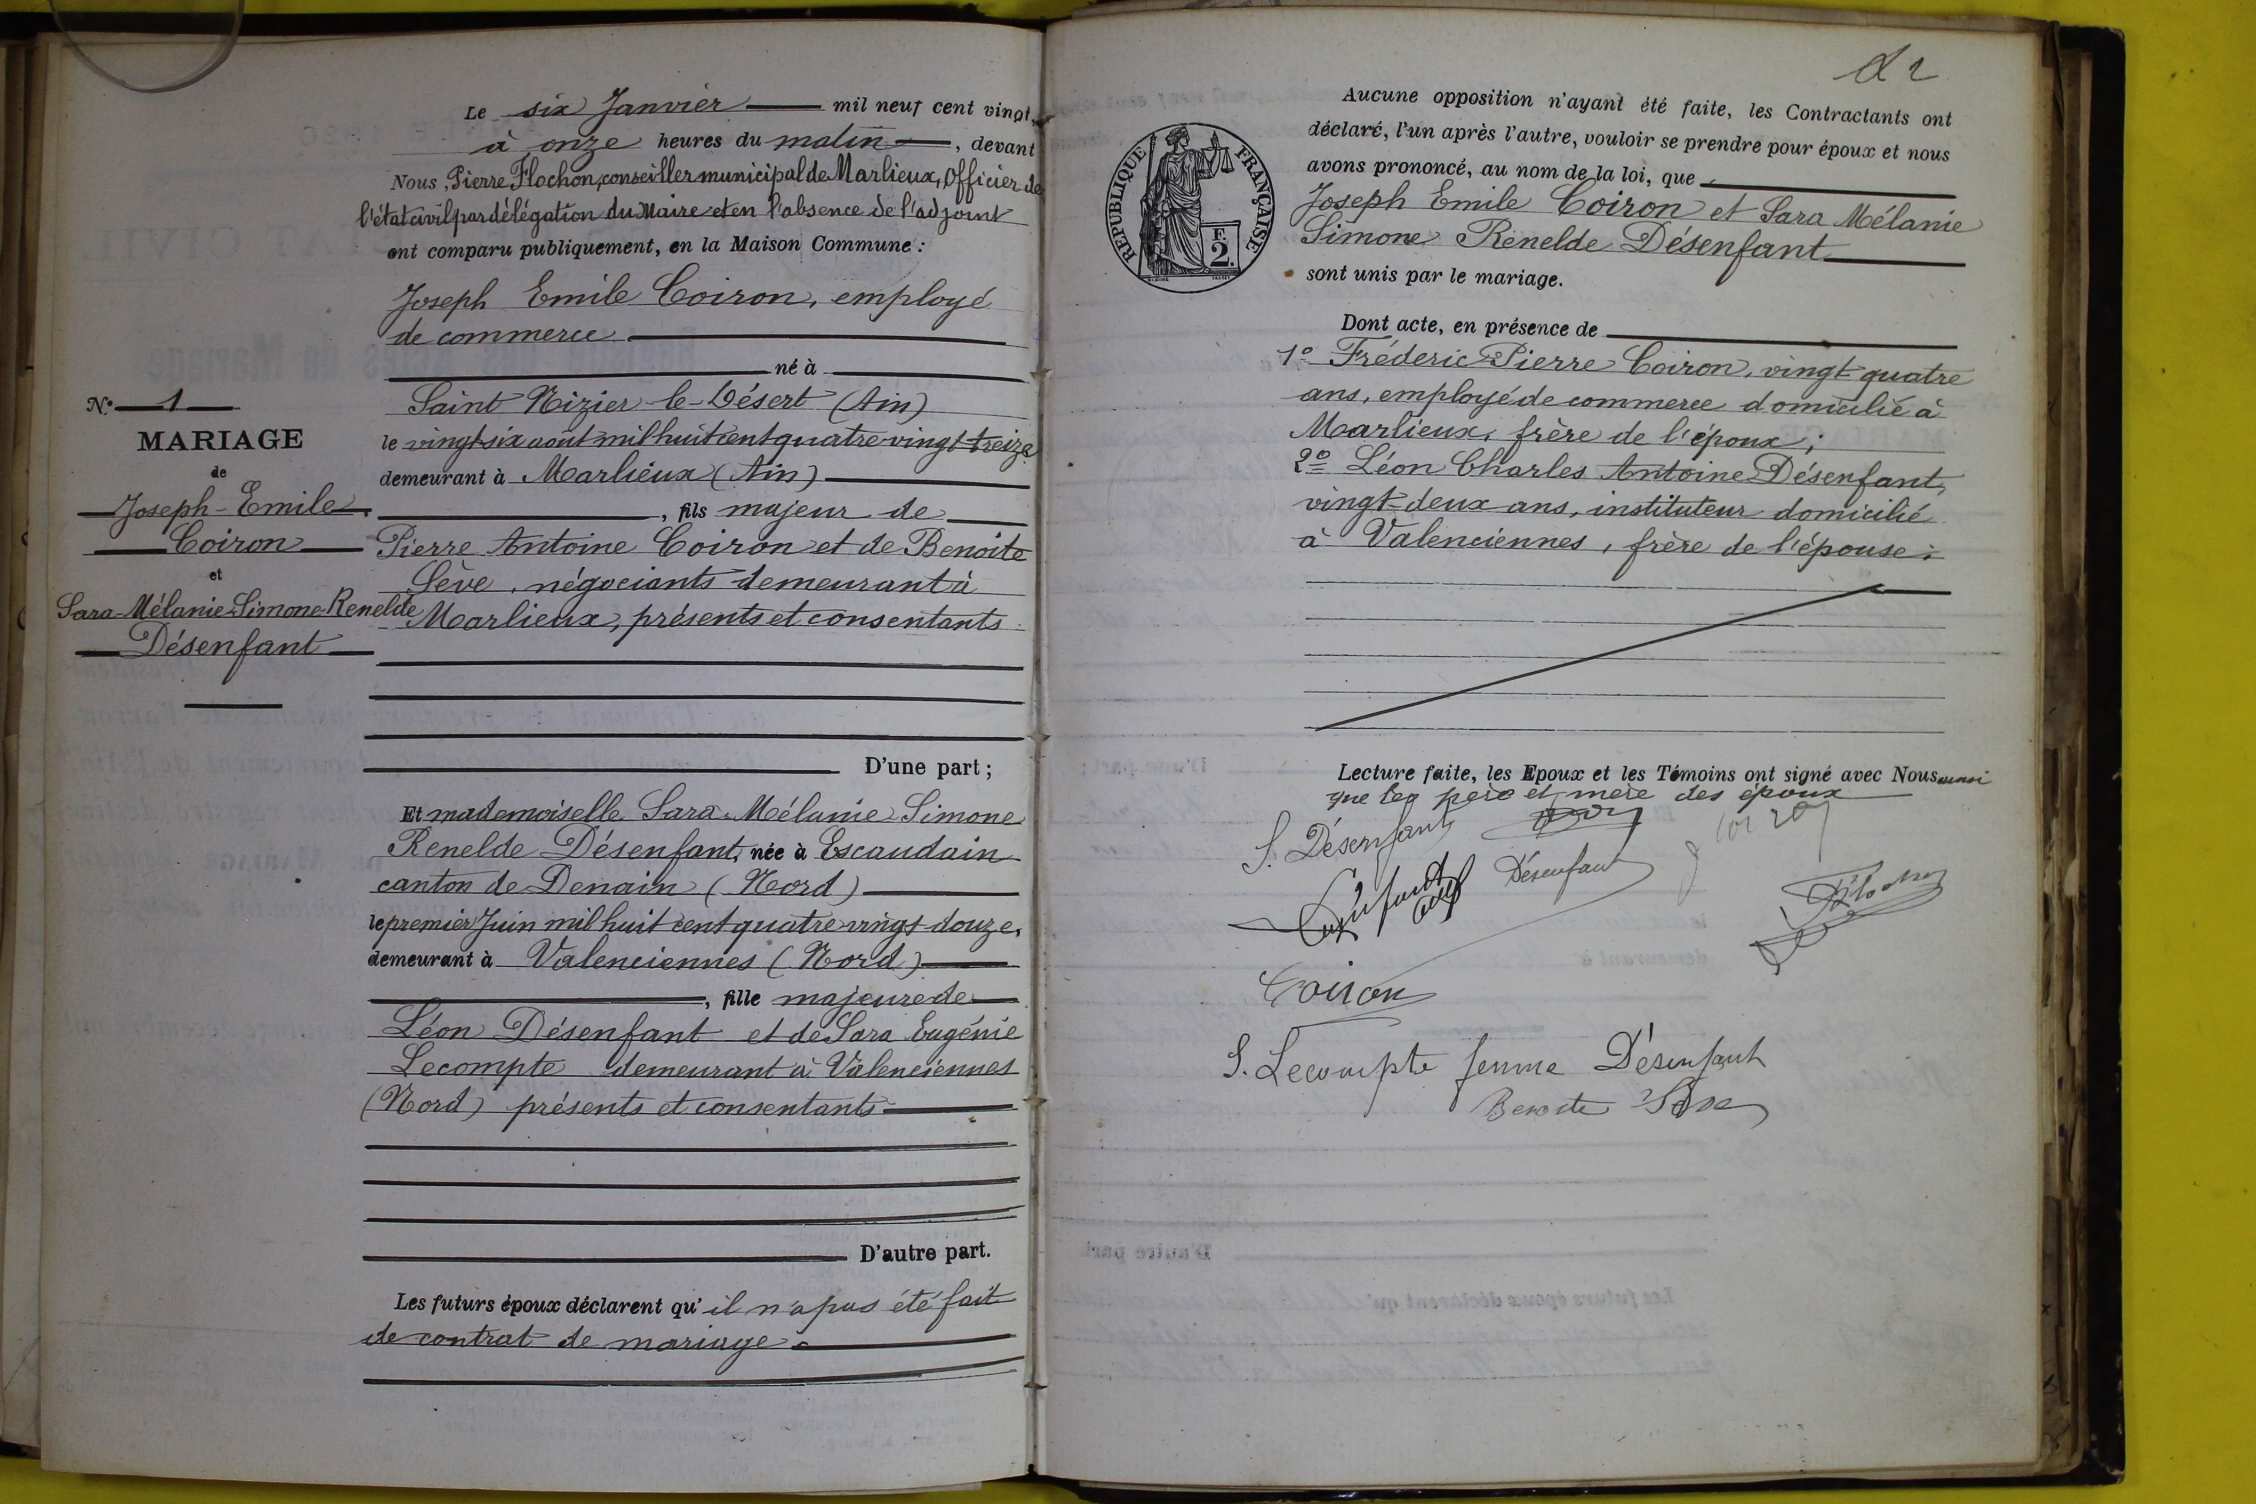 Le six Janvier mil neuf cent vingt,
à onze heures du matin, devant
Nous, Pierre Flochon, conseiller municipal de Marlieux, Officier de
l'état civil par délégation du Maire et en l'absence de l'adjoint
ont comparu publiquement, en la Maison Commune :
Joseph Emile Coiron, employé
de commerce
né à
Saint Nizier-le-Désert (Ain)
le vingt-six août mil huit cent quatre vingt treize
demeurant à Marlieux (Ain)
, fils majeur de
Pierre Antoine Coiron et de Benoite
Sève, négociants demeurant à
Marlieux, présents et consentants
D'une part ;
Et mademoiselle Sara Mélanie Simone
Renelde Désenfant, née à Escaudain
canton de Denain (Nord)
le premier Juin mil huit cent quatre vingt douze,
demeurant à Valenciennes (Nord)
, fille majeure de
Léon Désenfant et de Sara Eugénie
Lecompte demeurant à Valenciennes
(Nord) présents et consentants
D'autre part.
Les futurs époux déclarent qu'il n'a pas été fait
de contrat de mariage.
N.º 1
MARIAGE
de
Joseph-Emile
Coiron
et
Sara-Mélanie-Simone-Renelde
Désenfant
RÉPUBLIQUE FRANÇAISE
F.
2.
Aucune opposition n'ayant été faite, les Contractants ont
déclaré, l'un après l'autre, vouloir se prendre pour époux et nous
avons prononcé, au nom de la loi, que
Joseph Emile Coiron et Sara Mélanie
Simone Renelde Désenfant
sont unis par le mariage.
Dont acte, en présence de
1º Fréderic Pierre Coiron, vingt quatre
ans, employé de commerce domicilié à
Marlieux, frère de l'époux ;
2º Léon Charles Antoine Désenfant,
vingt-deux ans, instituteur domicilié
à Valenciennes, frère de l'épouse.
Lecture faite, les Epoux et les Témoins ont signé avec Nous ainsi
que les père et mère des époux
S. Désenfant
Désenfant
Coiron
S. Lecompte femme Désenfant
Benoite Sève